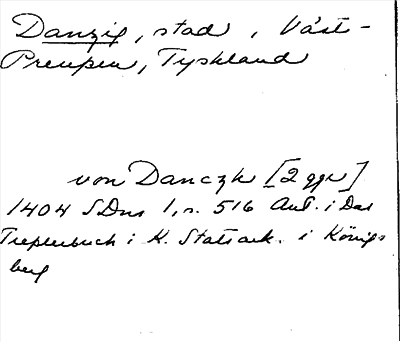 Danzig, stad, Väst-
Preussen, Tyskland
von Danczk [2 ggr]
1404 SDns 1, n. 516 Ant. i Das
Tresslerbuch i K. Statsark. i Königs
berg